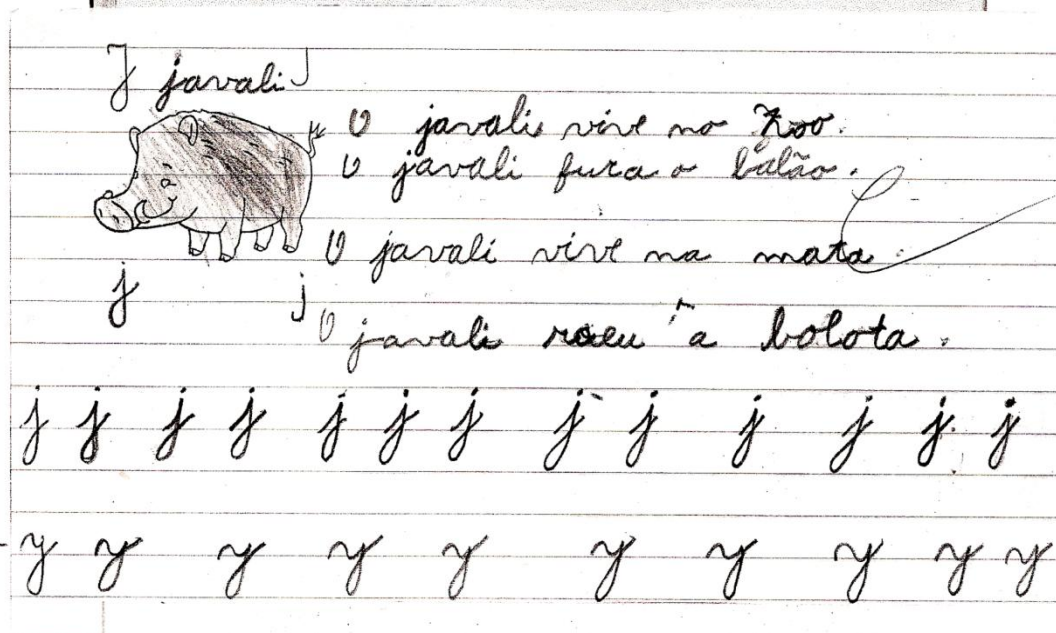 J javali J
O javali vive no zoo.
O javali fura o balão.
O javali vive na mata.
j j
O javali roeu a bolota.
j j j j j j j j j j j j j
y y y y y y y y y y